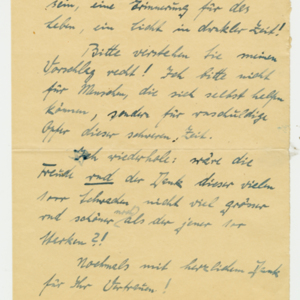 sein, eine Erinnerung für das
Leben, ein Licht in dunkler Zeit!
Bitte verstehen Sie meinen
Vorschlag recht! Ich bitte nicht
für Menschen, die sich selbst helfen
können, sondern für unschuldige
Opfer dieser schweren Zeit.
Ich wiederhole: wäre die
Freude und der Dank dieser vielen
1000 Schwachen nicht viel grösser
und schöner noch als der jener 100
Starken?!
Nochmals mit herzlichem Dank
für Ihr Vertrauen!